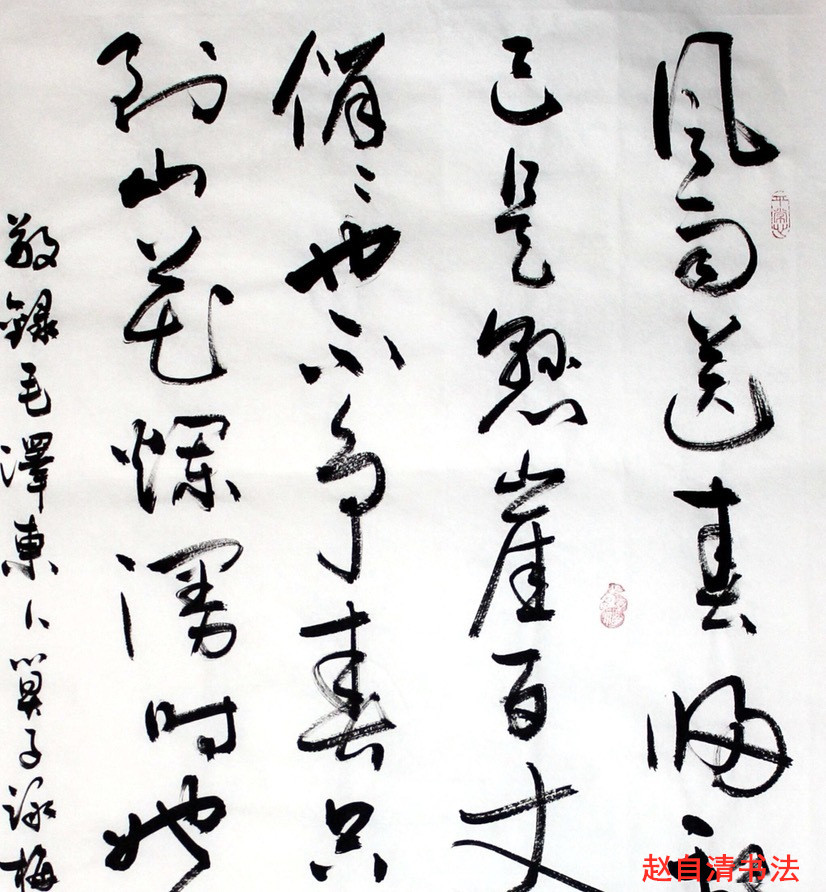 风雨送春归
已是悬崖百丈
俏々也不争春只
到山花烂漫时她
敬錄毛澤東卜算子詠梅
赵自清书法